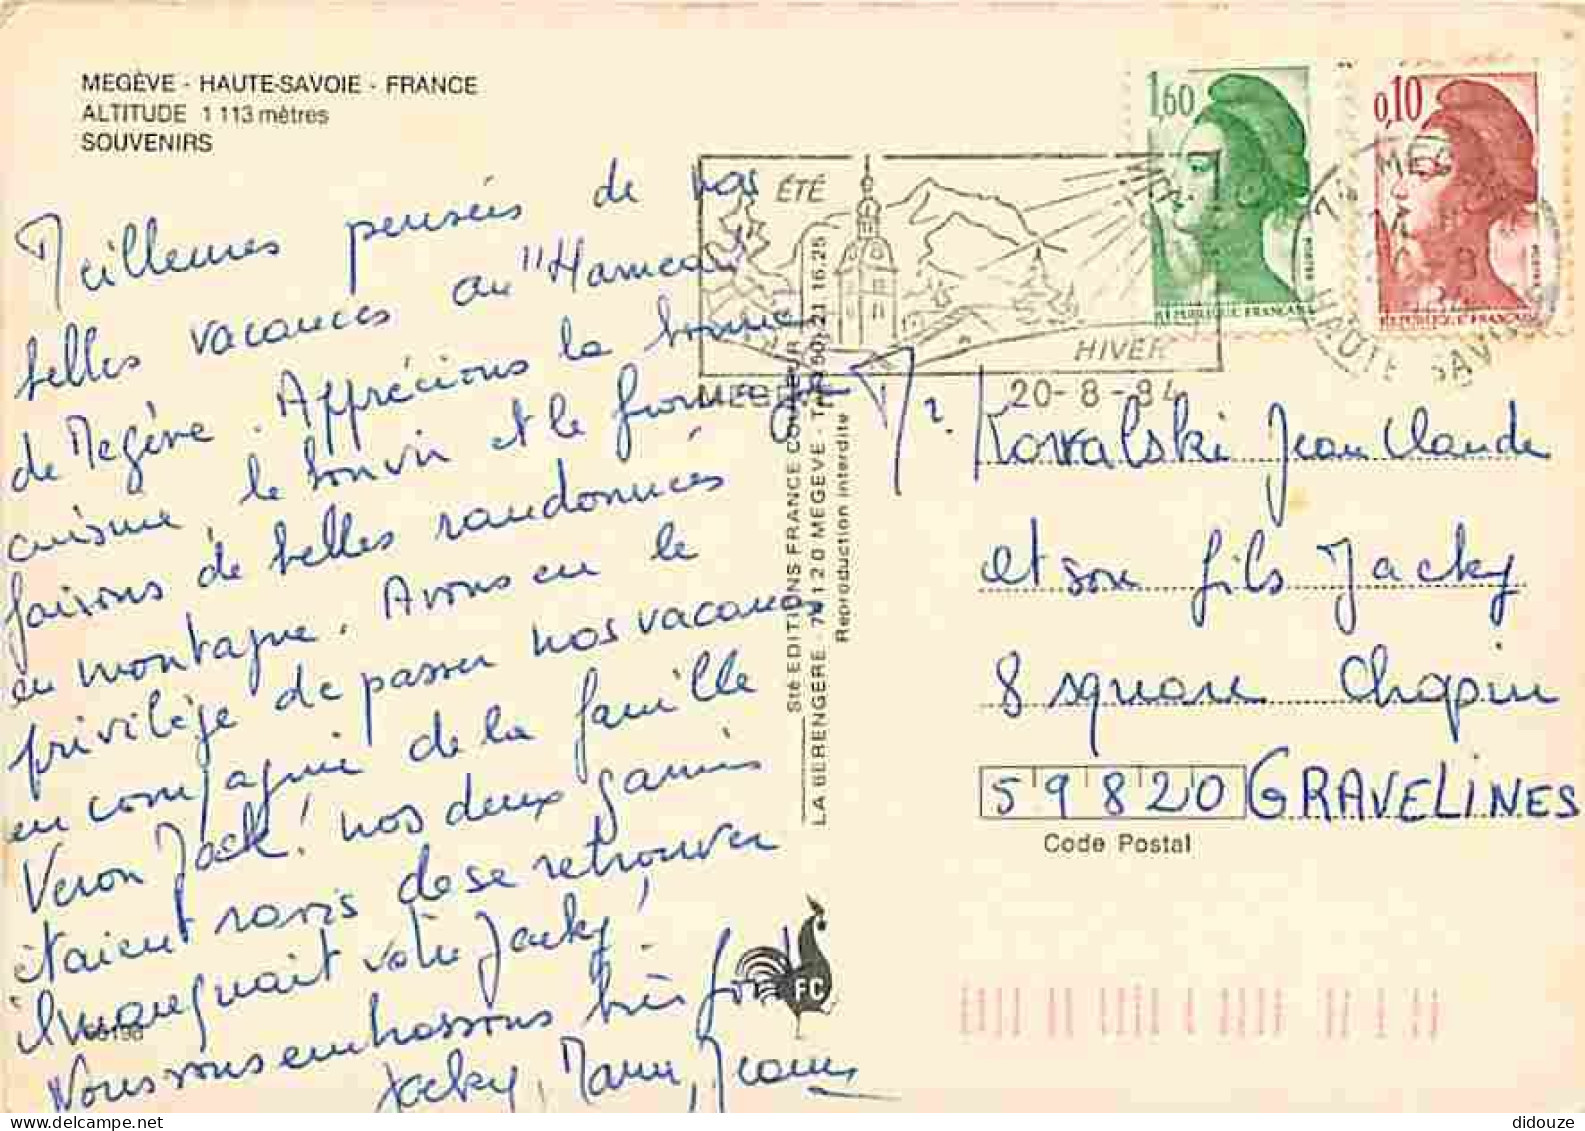 MEGÈVE - HAUTE-SAVOIE - FRANCE
ALTITUDE 1 113 mètres
SOUVENIRS
Meilleures pensées de nos
belles vacances au "Hameau"
de Megève. Apprécions la bonne
cuisine, le bon vin et le fromage
faisons de belles randonnées
en montagne. Avons eu le
privilège de passer nos vacances
en compagnie de la famille
Veron Jack! nos deux gamins
étaient ravis de se retrouver
il manquait votre Jacky!
Nous vous embrassons très fort
Jacky, 
Sté EDITIONS FRANCE COULEUR
LA BERENGERE - 74120 MEGEVE - Tél. (50) 21 16.25
Reproduction interdite
FC
ÉTÉ
HIVER
MEGEVE
20-8-84
1,60
REPUBLIQUE FRANÇAISE
0,10
REPUBLIQUE FRANÇAISE
74 MEGEVE
HAUTE SAVOIE
Mr. Kowalski Jean Claude
et son fils Jacky
8 square Chopin
59820 GRAVELINES
Code Postal
didouze